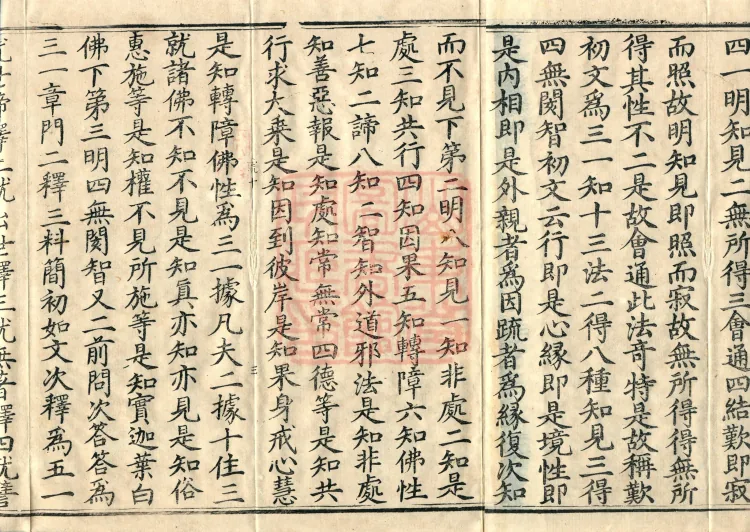 四一明知見二無所得三會通四結歎即寂
而照故明知見即照而寂故無所得得無所
得其性不二是故會通此法奇特是故稱歎
初文爲三一知十三法二得八種知見三得
四無閡智初文云行即是心緣即是境性即
是内相即是外親者爲因疏者爲緣復次知
而不見下第二明八知見一知非處二知是
處三知共行四知因果五知轉障六知佛性
七知二諦八知二智知外道邪法是知非處
知善惡報是知處知常無常四德等是知共
行求大乘是知因到彼岸是知果身戒心慧
是知轉障佛性爲三一據凡夫二據十住三
就諸佛不知不見是知真亦知亦見是知俗
惠施等是知權不見所施等是知實迦葉白
佛下第三明四無閡智又二前問次答答爲
三一章門二釋三料簡初如文次釋爲五一
就世諦釋二就出世釋三就無著釋四就